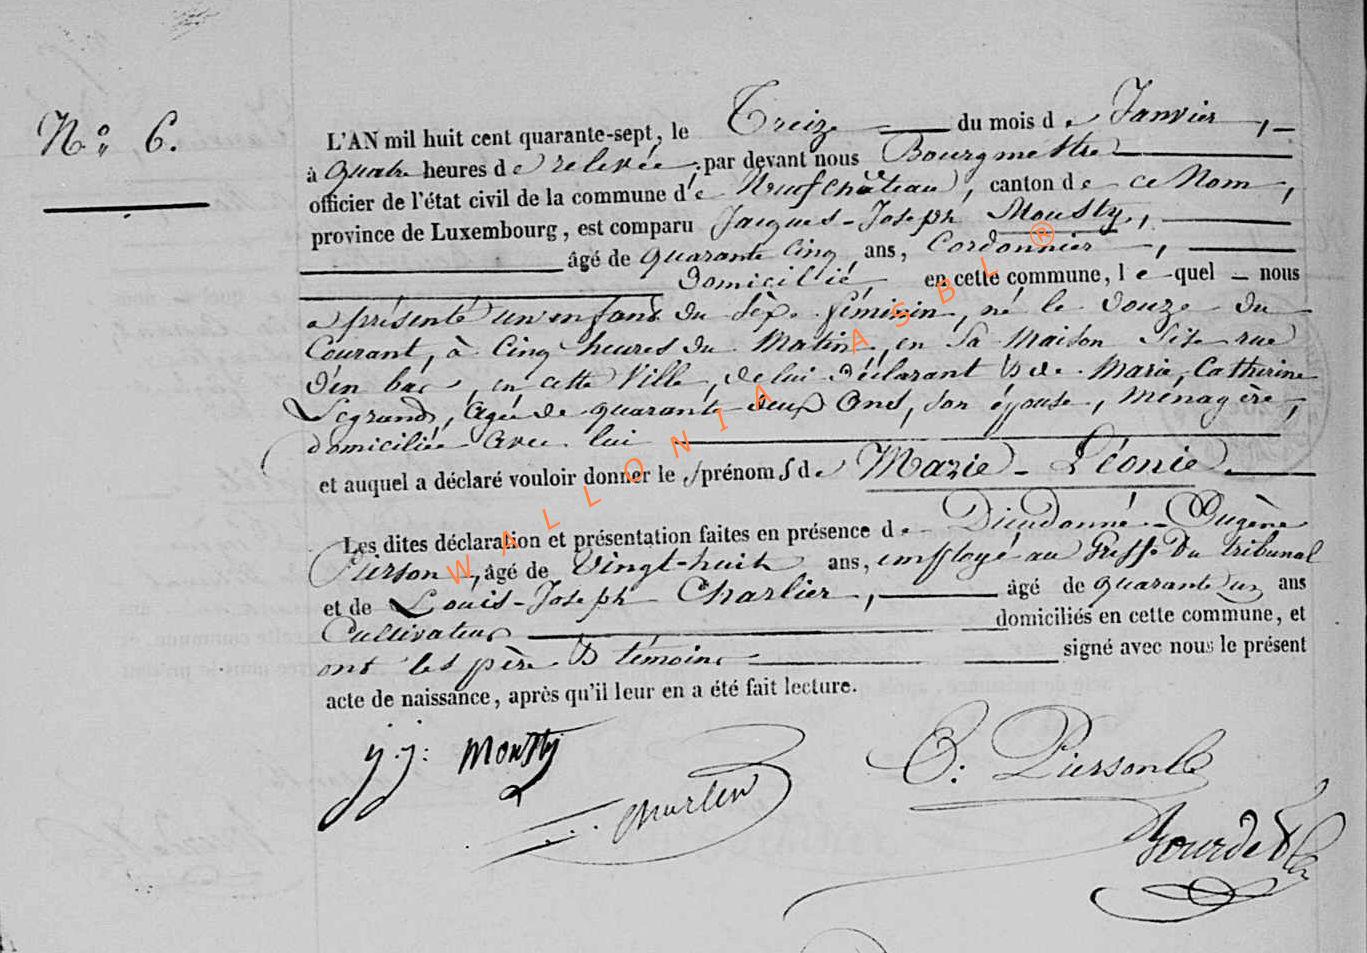 N.° 6.
L'AN mil huit cent quarante-sept, le Treize du mois de Janvier,
à quatre heures de relevée par devant nous Bourgmestre
officier de l'état civil de la commune de Neufchâteau, canton de ce Nom,
province de Luxembourg, est comparu Jacques-Joseph Mousty,
âgé de quarante cinq ans, Cordonnier,
Domicilié, en cette commune, lequel nous
a présenté un enfant du sexe féminin, né le douze du
Courant, à cinq heures du Matin, en sa Maison sise rue
d'en bas, en cette Ville, de lui déclarant & de Marie, Catherine
Legrand, âgée de quarante deux ans, son épouse, Ménagère,
domiciliée avec lui
et auquel a déclaré vouloir donner les prénoms de Marie-Léonie
Les dites déclaration et présentation faites en présence de Dieudonné-Eugène
Pierson, âgé de Vingt-huit ans, employé au Greffe du tribunal
et de Louis-Joseph Charlier, âgé de quarante un ans
Cultivateur domiciliés en cette commune, et
ont les père & témoins signé avec nous le présent
acte de naissance, après qu'il leur en a été fait lecture.
j.j: Mousty
Charlier
E: Pierson
WALLONIA ASBL ®